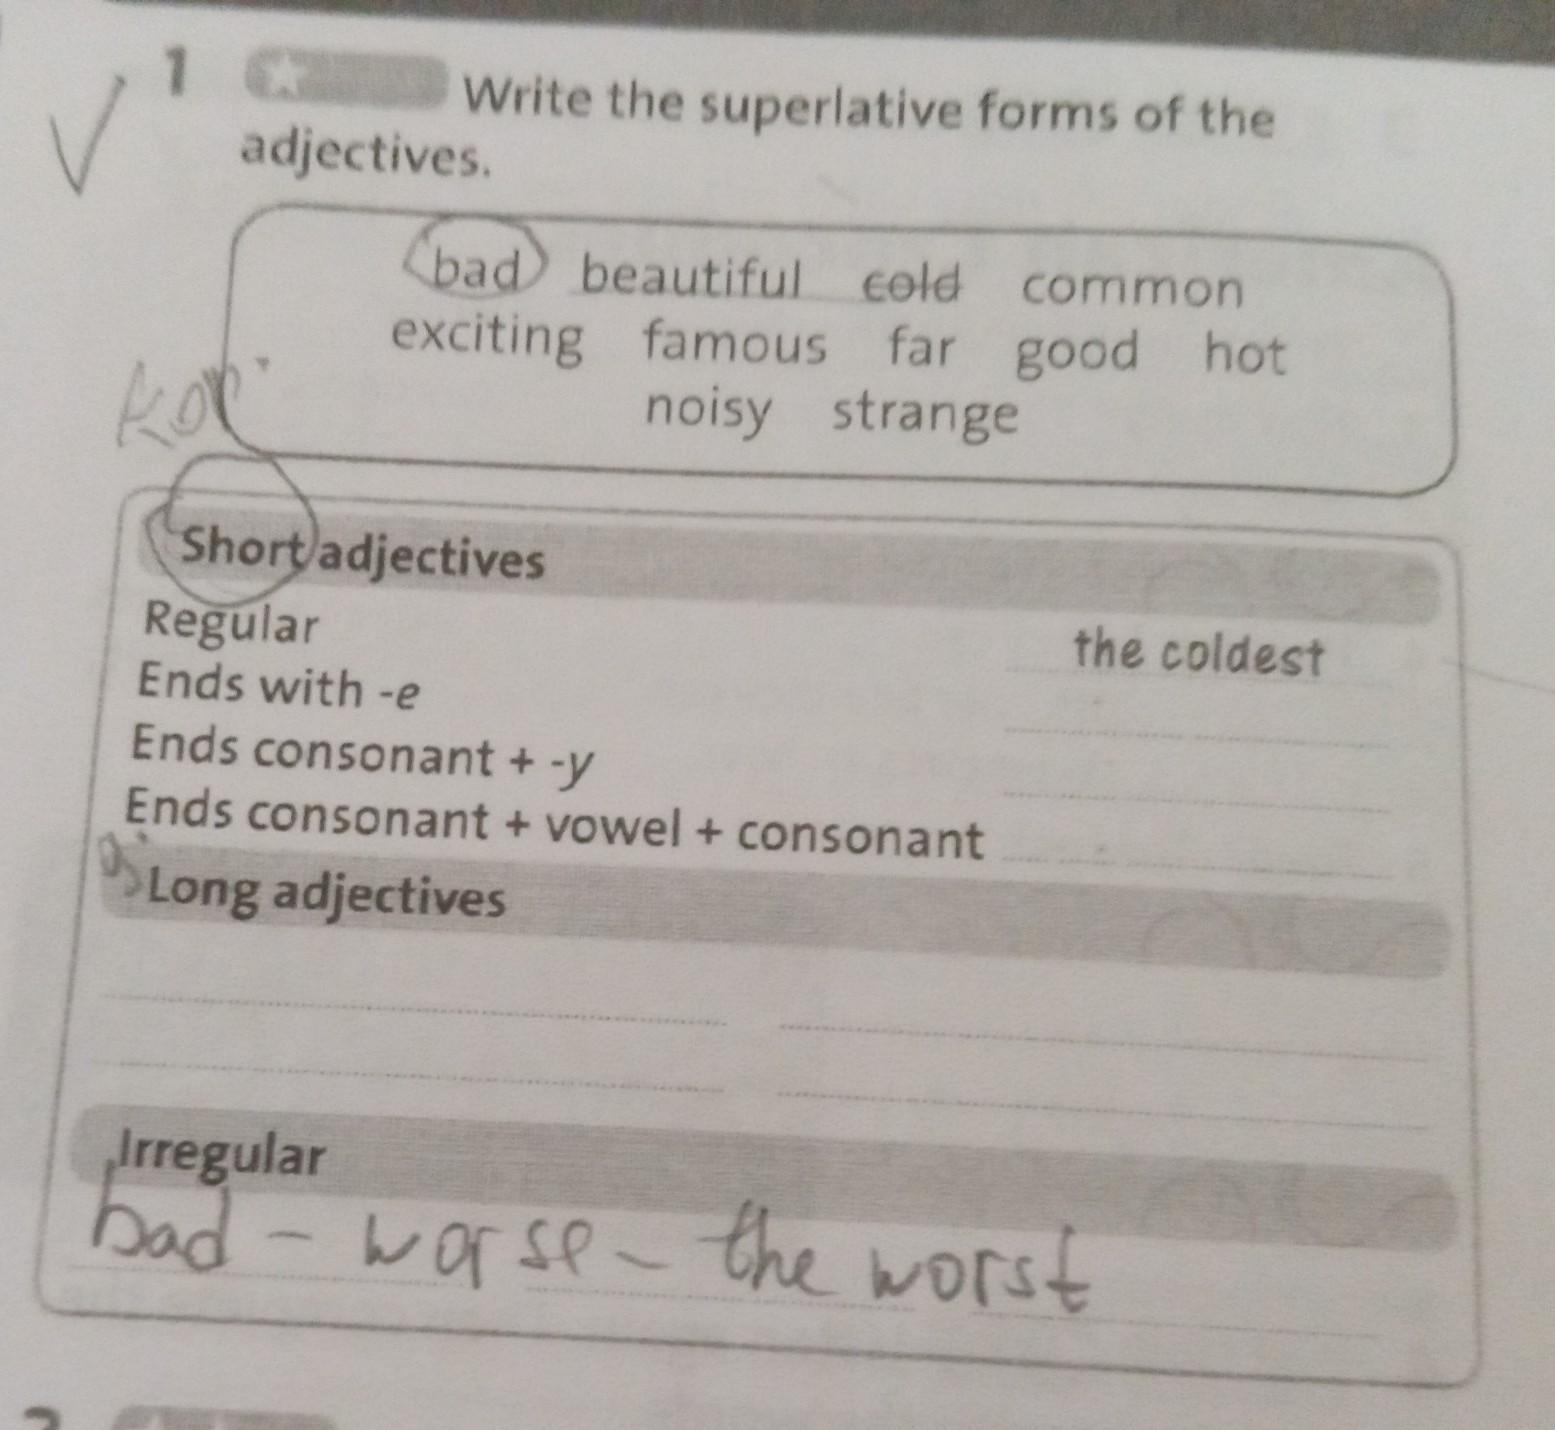 1 Write the superlative forms of the
adjectives.
bad beautiful cold common
exciting famous far good hot
noisy strange
Short adjectives
Regular the coldest
Ends with -e
Ends consonant + -y
Ends consonant + vowel + consonant
Long adjectives
Irregular
bad - worse - the worst